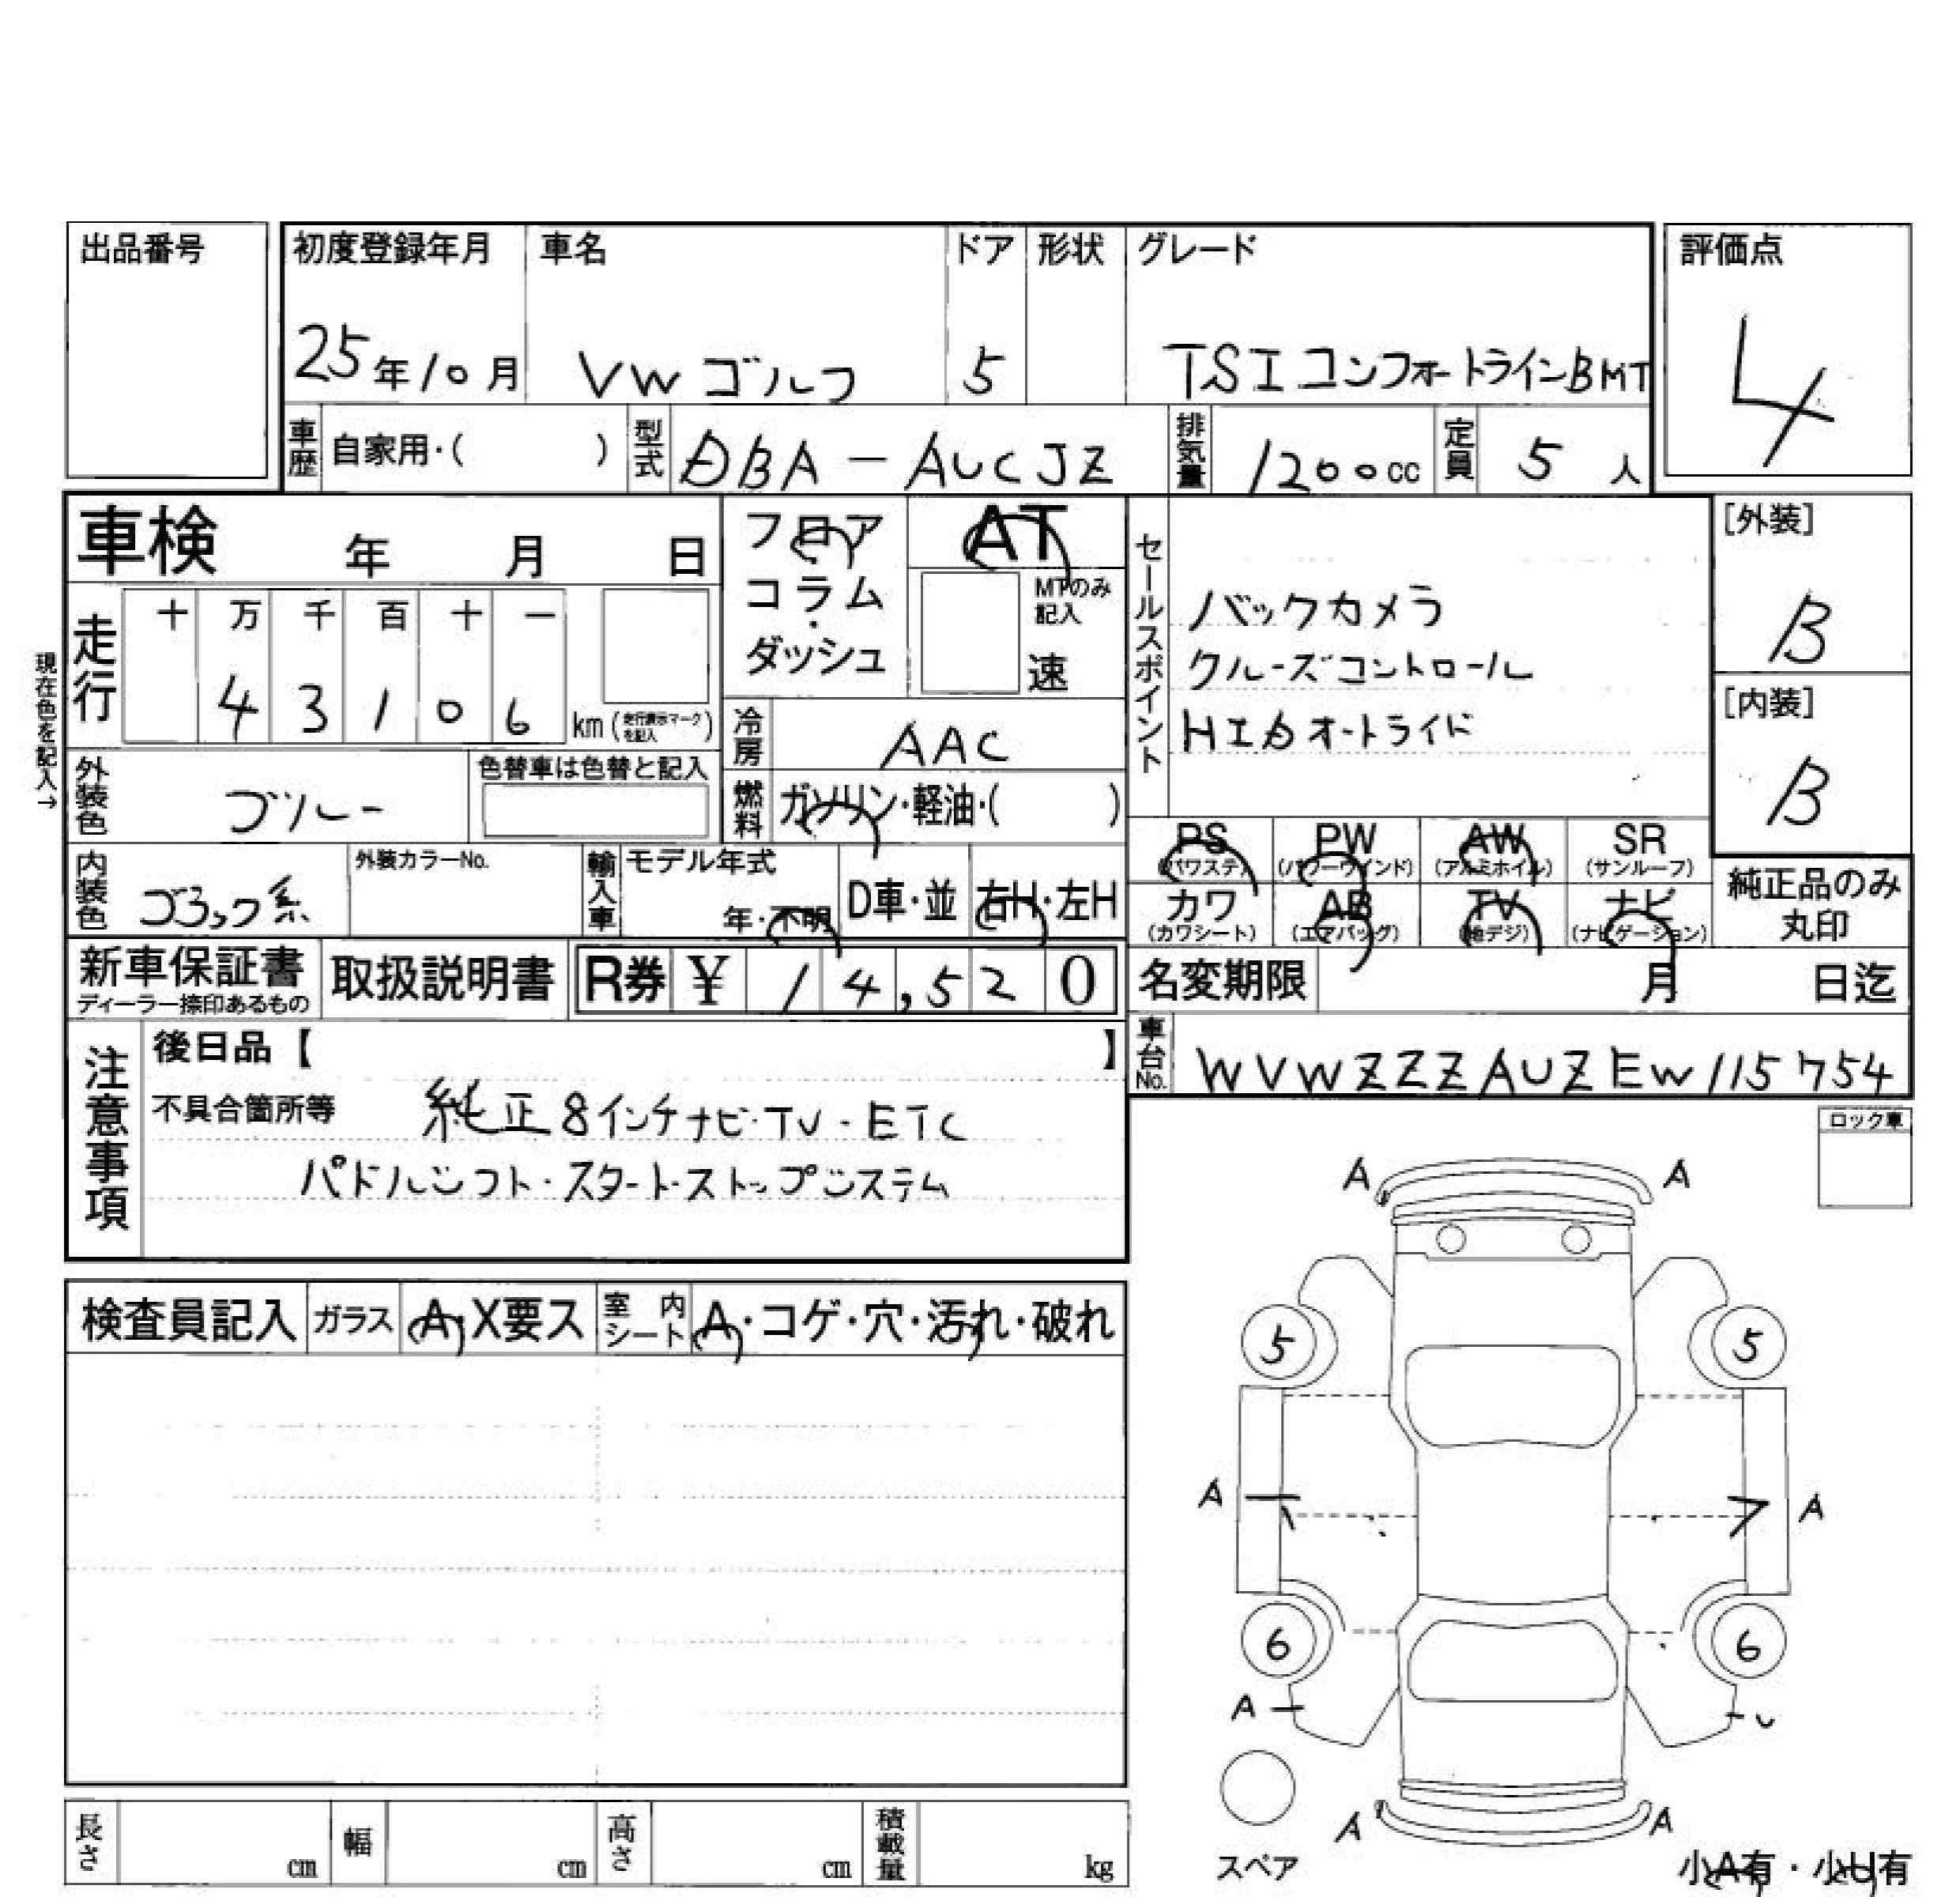 出品番号
初度登録年月 車名 ドア 形状 グレード 評価点
25年10月 VW ゴルフ 5 TSI コンフォートラインBMT 4
車歴 自家用・( ) 型式 DBA-AUCJZ 排気量 1200cc 定員 5人
車検 年 月 日
フロア AT
コラム MTのみ記入
ダッシュ 速
走行 十 万 千 百 十 一
4 3 1 0 6 km (走行表示マークを記入)
現在色を記入→
冷房 AAC
外装色 ブルー 色替車は色替と記入
燃料 ガソリン・軽油・( )
内装色 ブラック系 外装カラーNo.
輸入車 モデル年式 年・不明 D車・並 右H・左H
新車保証書 ディーラー捺印あるもの 取扱説明書 R券 ¥ 14,520
セールスポイント
バックカメラ
クルーズコントロール
HIDオートライト
[外装]
B
[内装]
B
PS PW AW SR
(パワステ) (パワーウインド) (アルミホイル) (サンルーフ)
カワ AB TV ナビ
(カワシート) (エアバッグ) (地デジ) (ナビゲーション)
純正品のみ
丸印
名変期限 月 日迄
車台No. WVWZZZAUZEW115754
注意事項
後日品【 】
不具合箇所等 純正8インチナビ・TV・ETC
パドルシフト・スタート・ストップシステム
ロック車
検査員記入 ガラス A・X要ス 室内シート A・コゲ・穴・汚れ・破れ
A A
5 5
A A
6 6
A
A A
スペア
小A有・小U有
長さ cm 幅 cm 高さ cm 積載量 kg